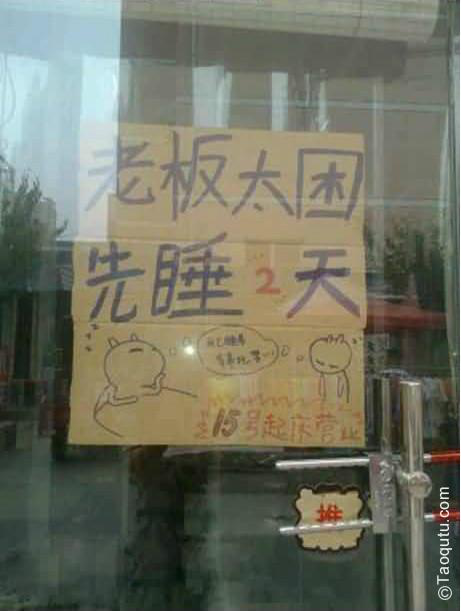 老板太困
先睡2天
15号起床营业
推
©Taoqutu.com